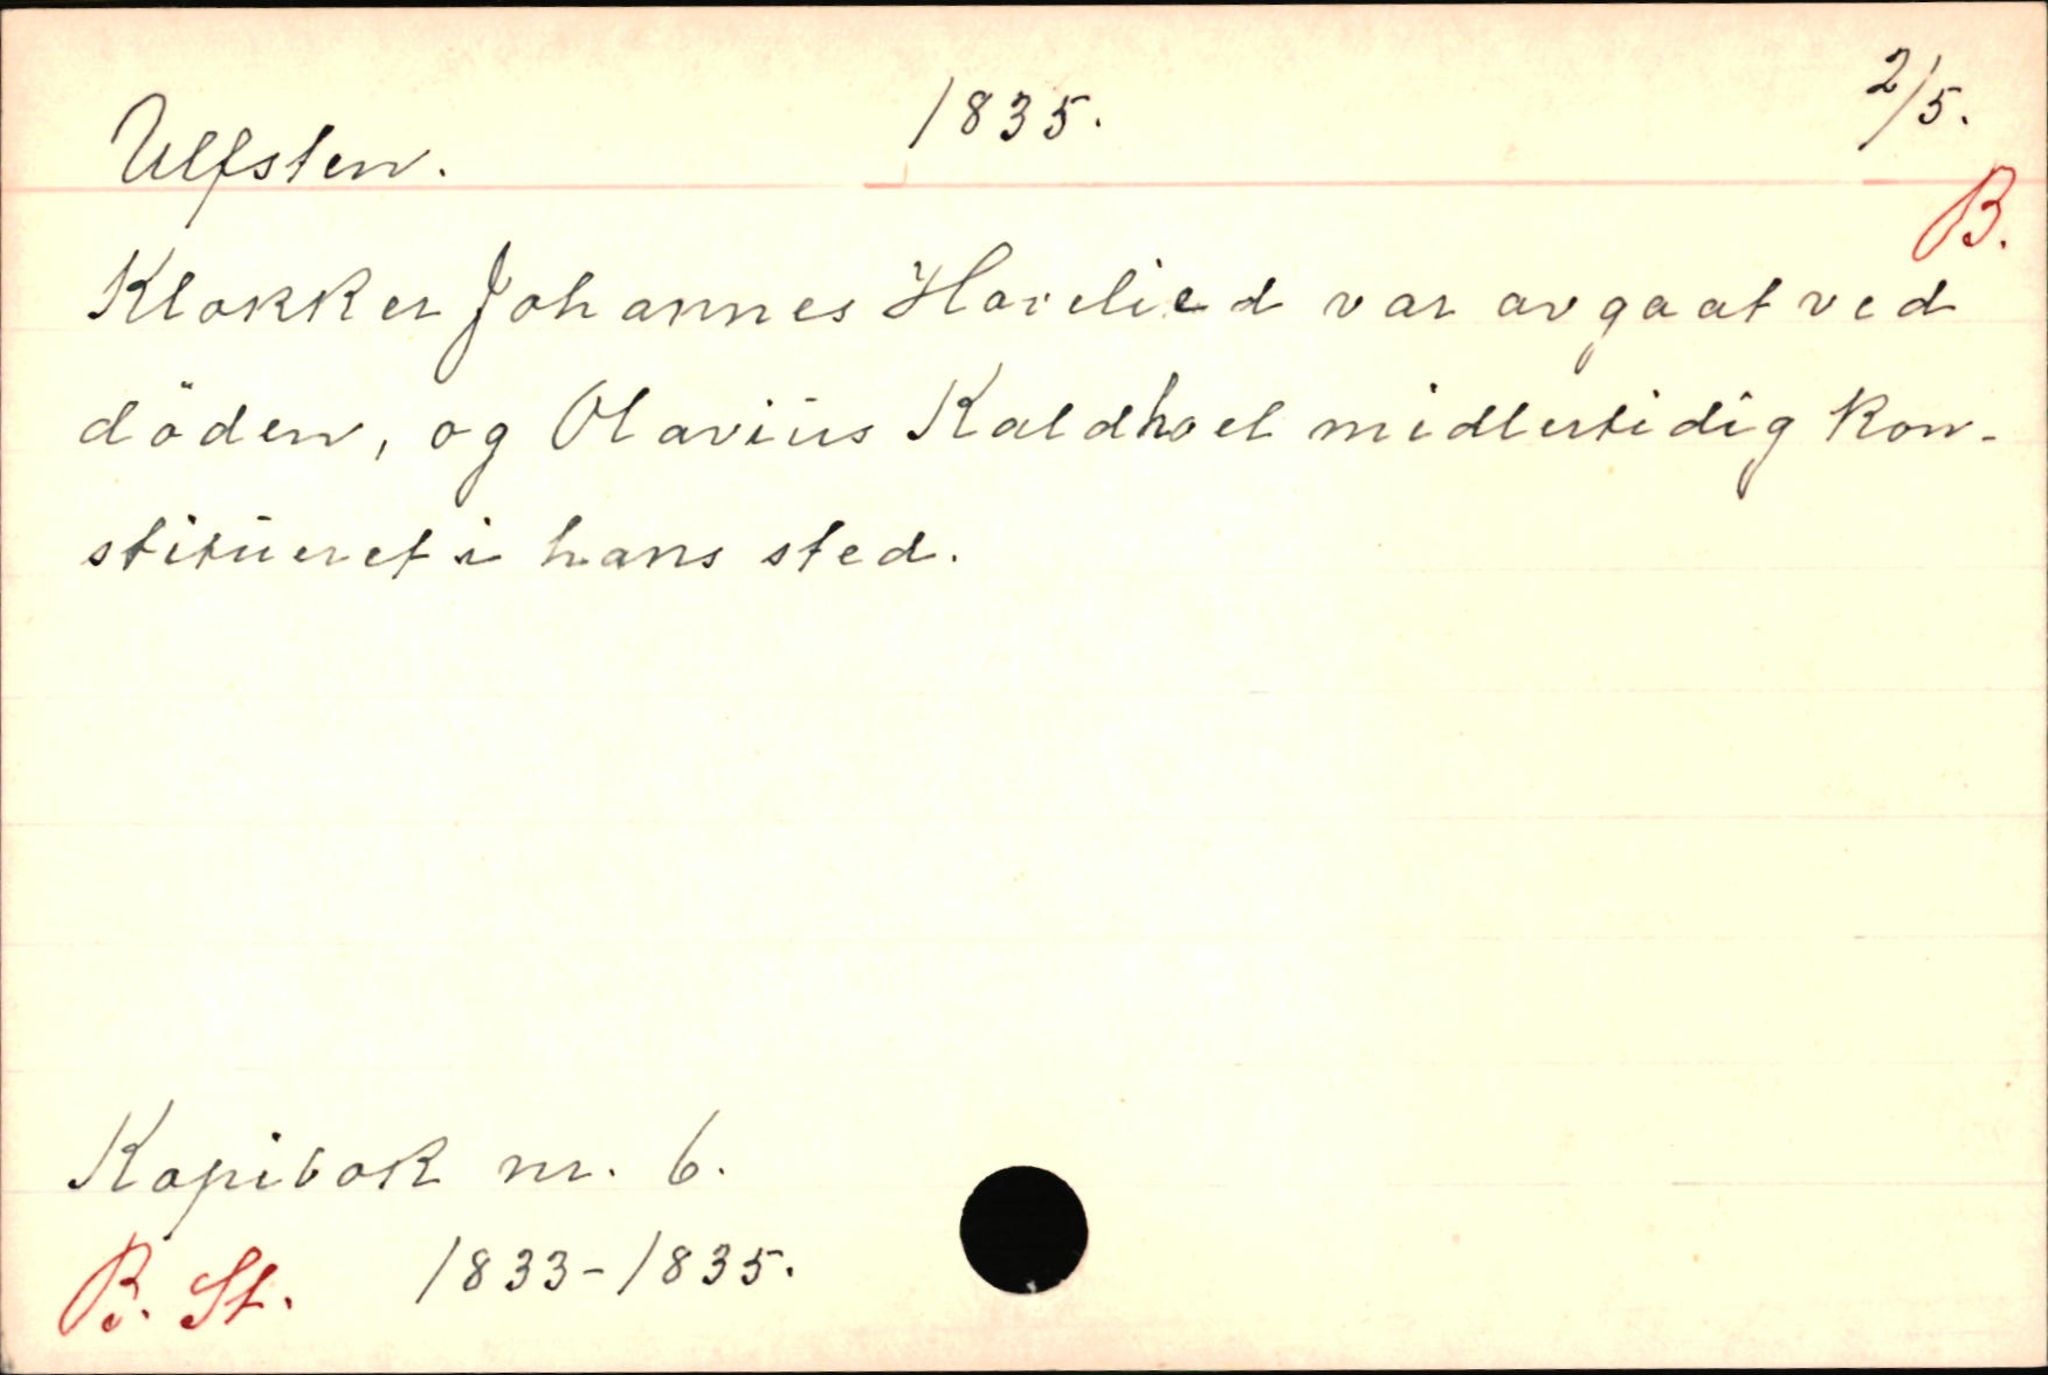 Ulfsten. 1835. 2/5.
B.
Klokker Johannes Harelied var avgaat ved
döden, og Olavius Kaldhoel midlertidig kon-
stitueret i hans sted.
Kopibok nr. 6.
B. St. 1833-1835.